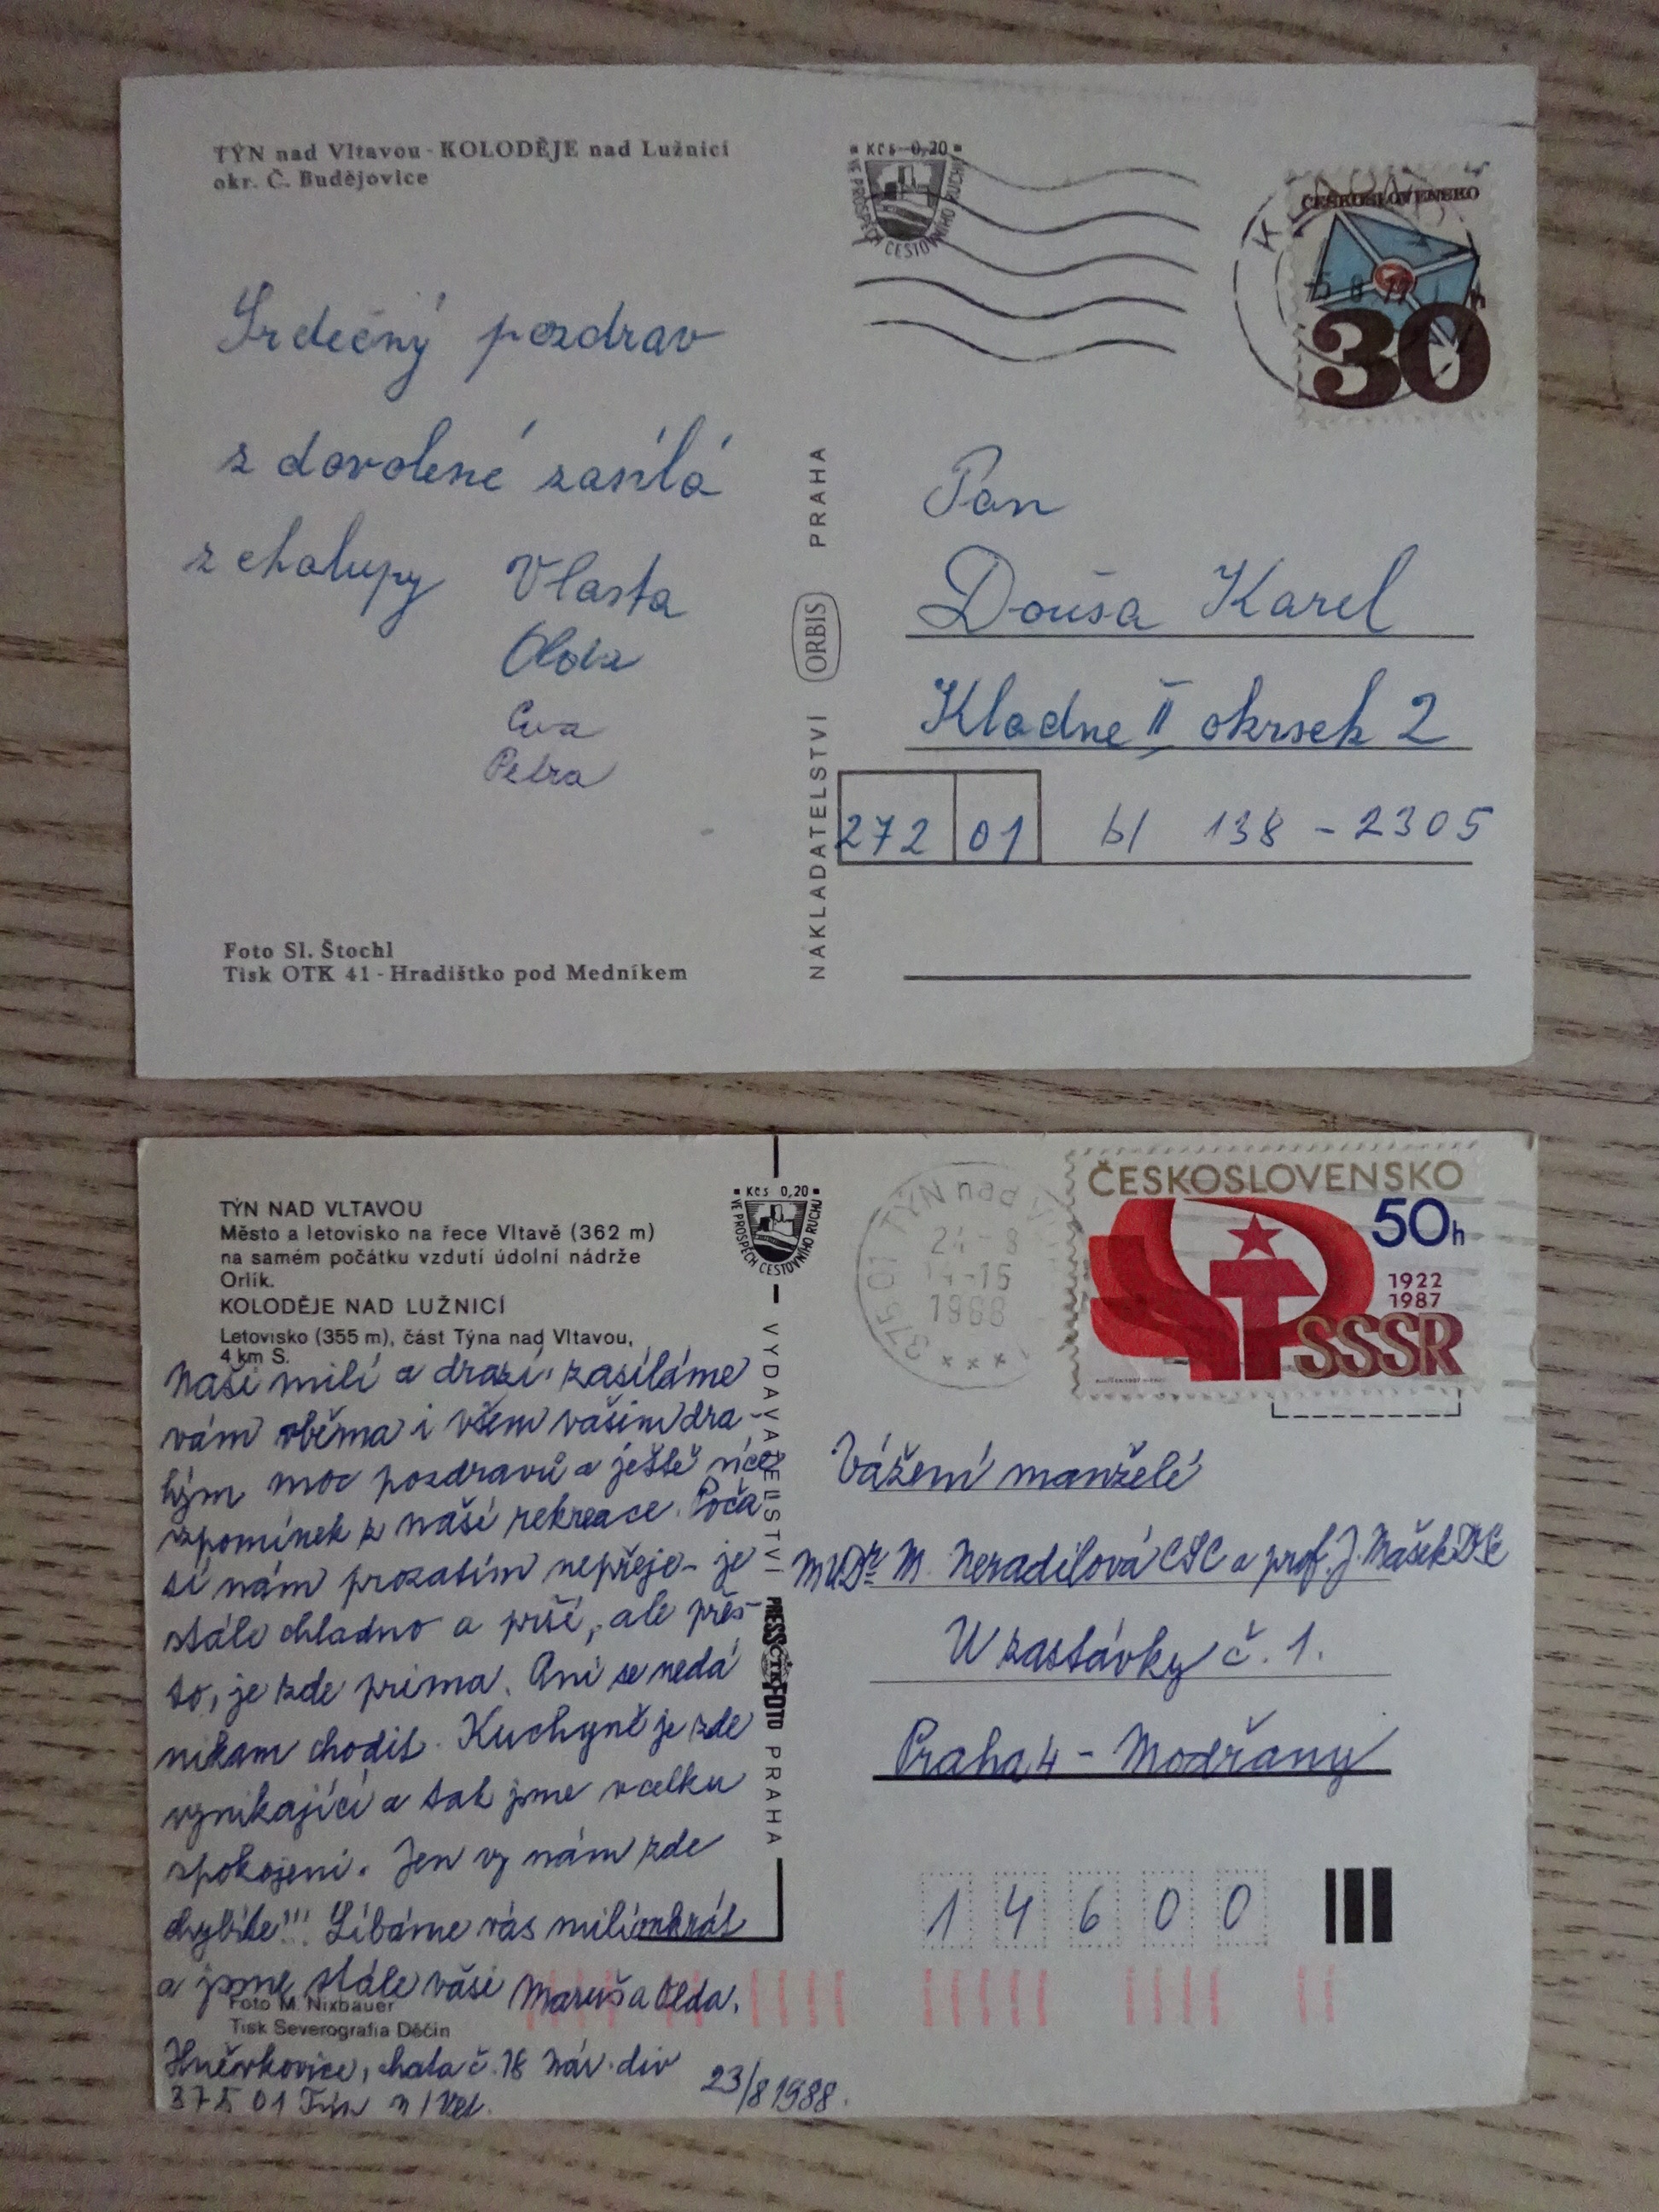 TÝN nad Vltavou - KOLODĚJE nad Lužnicí
okr. Č. Budějovice
Kčs 0,20
VE PROSPĚCH CESTOVNÍHO RUCHU
ČESKOSLOVENSKO
30
Srdečný pozdrav
z dovolené zasílá
z chalupy Vlasta
Olda
Eva
Petra
NAKLADATELSTVÍ ORBIS PRAHA
Pan
Douša Karel
Kladne II okrsek 2
272 01 bl 138 - 2305
Foto Sl. Štochl
Tisk OTK 41 - Hradištko pod Medníkem
TÝN NAD VLTAVOU
Město a letovisko na řece Vltavě (362 m)
na samém počátku vzdutí údolní nádrže
Orlík.
KOLODĚJE NAD LUŽNICÍ
Letovisko (355 m), část Týna nad Vltavou,
4 km S.
Kčs 0,20
VE PROSPĚCH CESTOVNÍHO RUCHU
375 01 TÝN nad
24 - 8
14-15
1988
ČESKOSLOVENSKO
50h
1922
1987
SSSR
Naši milí a drazí, zasíláme
vám oběma i všem vašim dra-
hým moc pozdravů a ještě více
vzpomínek z naší rekreace. Počа-
sí nám prozatím nepřeje - je
stále chladno a prší, ale přes-
to, je zde prima. Ani se nedá
nikam chodit. Kuchyně je zde
vynikající a tak jsme vcelku
spokojeni. Jen vy nám zde
chybíte!!! Líbáme vás miliónkrát
a jsme stále vaši Maruš a Olda.
Foto M. Nixbauer
Tisk Severografia Děčín
Hněvkovice, chata č. 18 Náv. div
375 01 Týn n/Vlt.
23/8 1988.
VYDAVATELSTVÍ PRESSFOTO PRAHA
ČTK
Vážení manželé
MUDr M. Neradilová CSC a prof. J. Mašek DrSc
U zastávky č. 1.
Praha 4 - Modřany
1 4 6 0 0